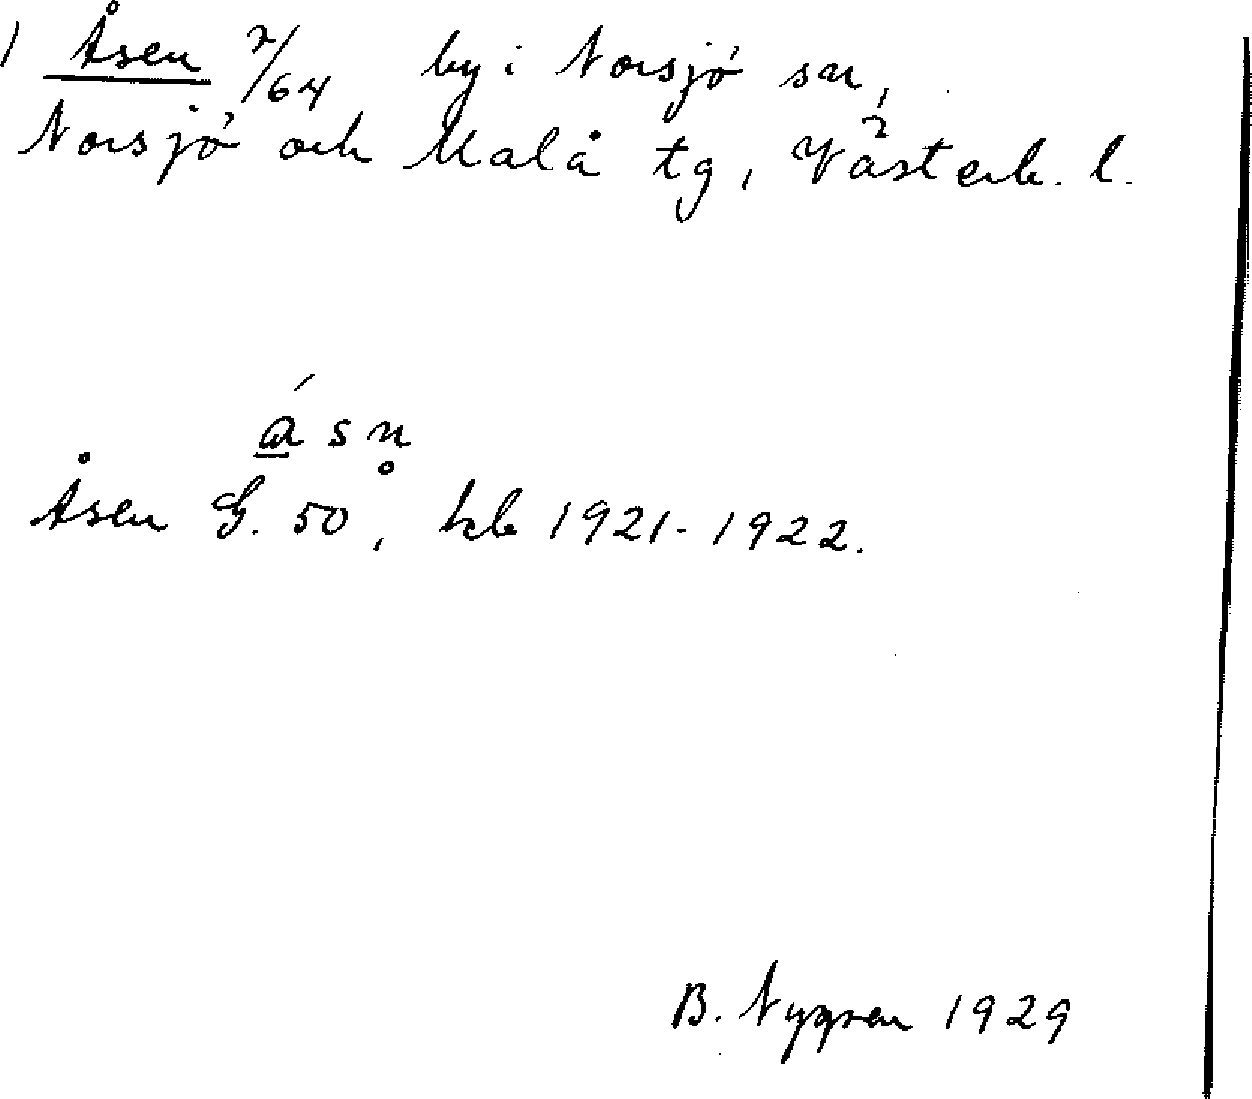 ) Åsen 7/64 by i Norsjö sn,
Norsjö och Malå tg, Västerb. l.
ásn̥
Åsen G. 50, kb 1921-1922.
B. Nygren 1929